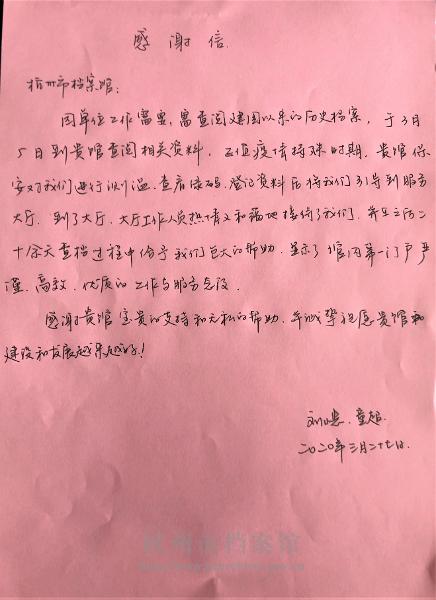 感谢信
杭州市档案馆:
因单位工作需要,需查阅建国以来的历史档案,于3月
5日到贵馆查阅相关资料,正值疫情特殊时期,贵馆保
安对我们进行测温、查看绿码、登记资料后将我们引导到服务
大厅,到了大厅,大厅工作人员热情又和蔼地接待了我们,并在之后二
十余天查档过程中给予我们巨大的帮助,显示了馆内第一门户严
谨、高效、优质的工作与服务
感谢贵馆宝贵的支持和无私的帮助,并诚挚祝愿贵馆
建设和发展越来越好!
童超
二〇二〇年三月二十七日
杭州市档案馆